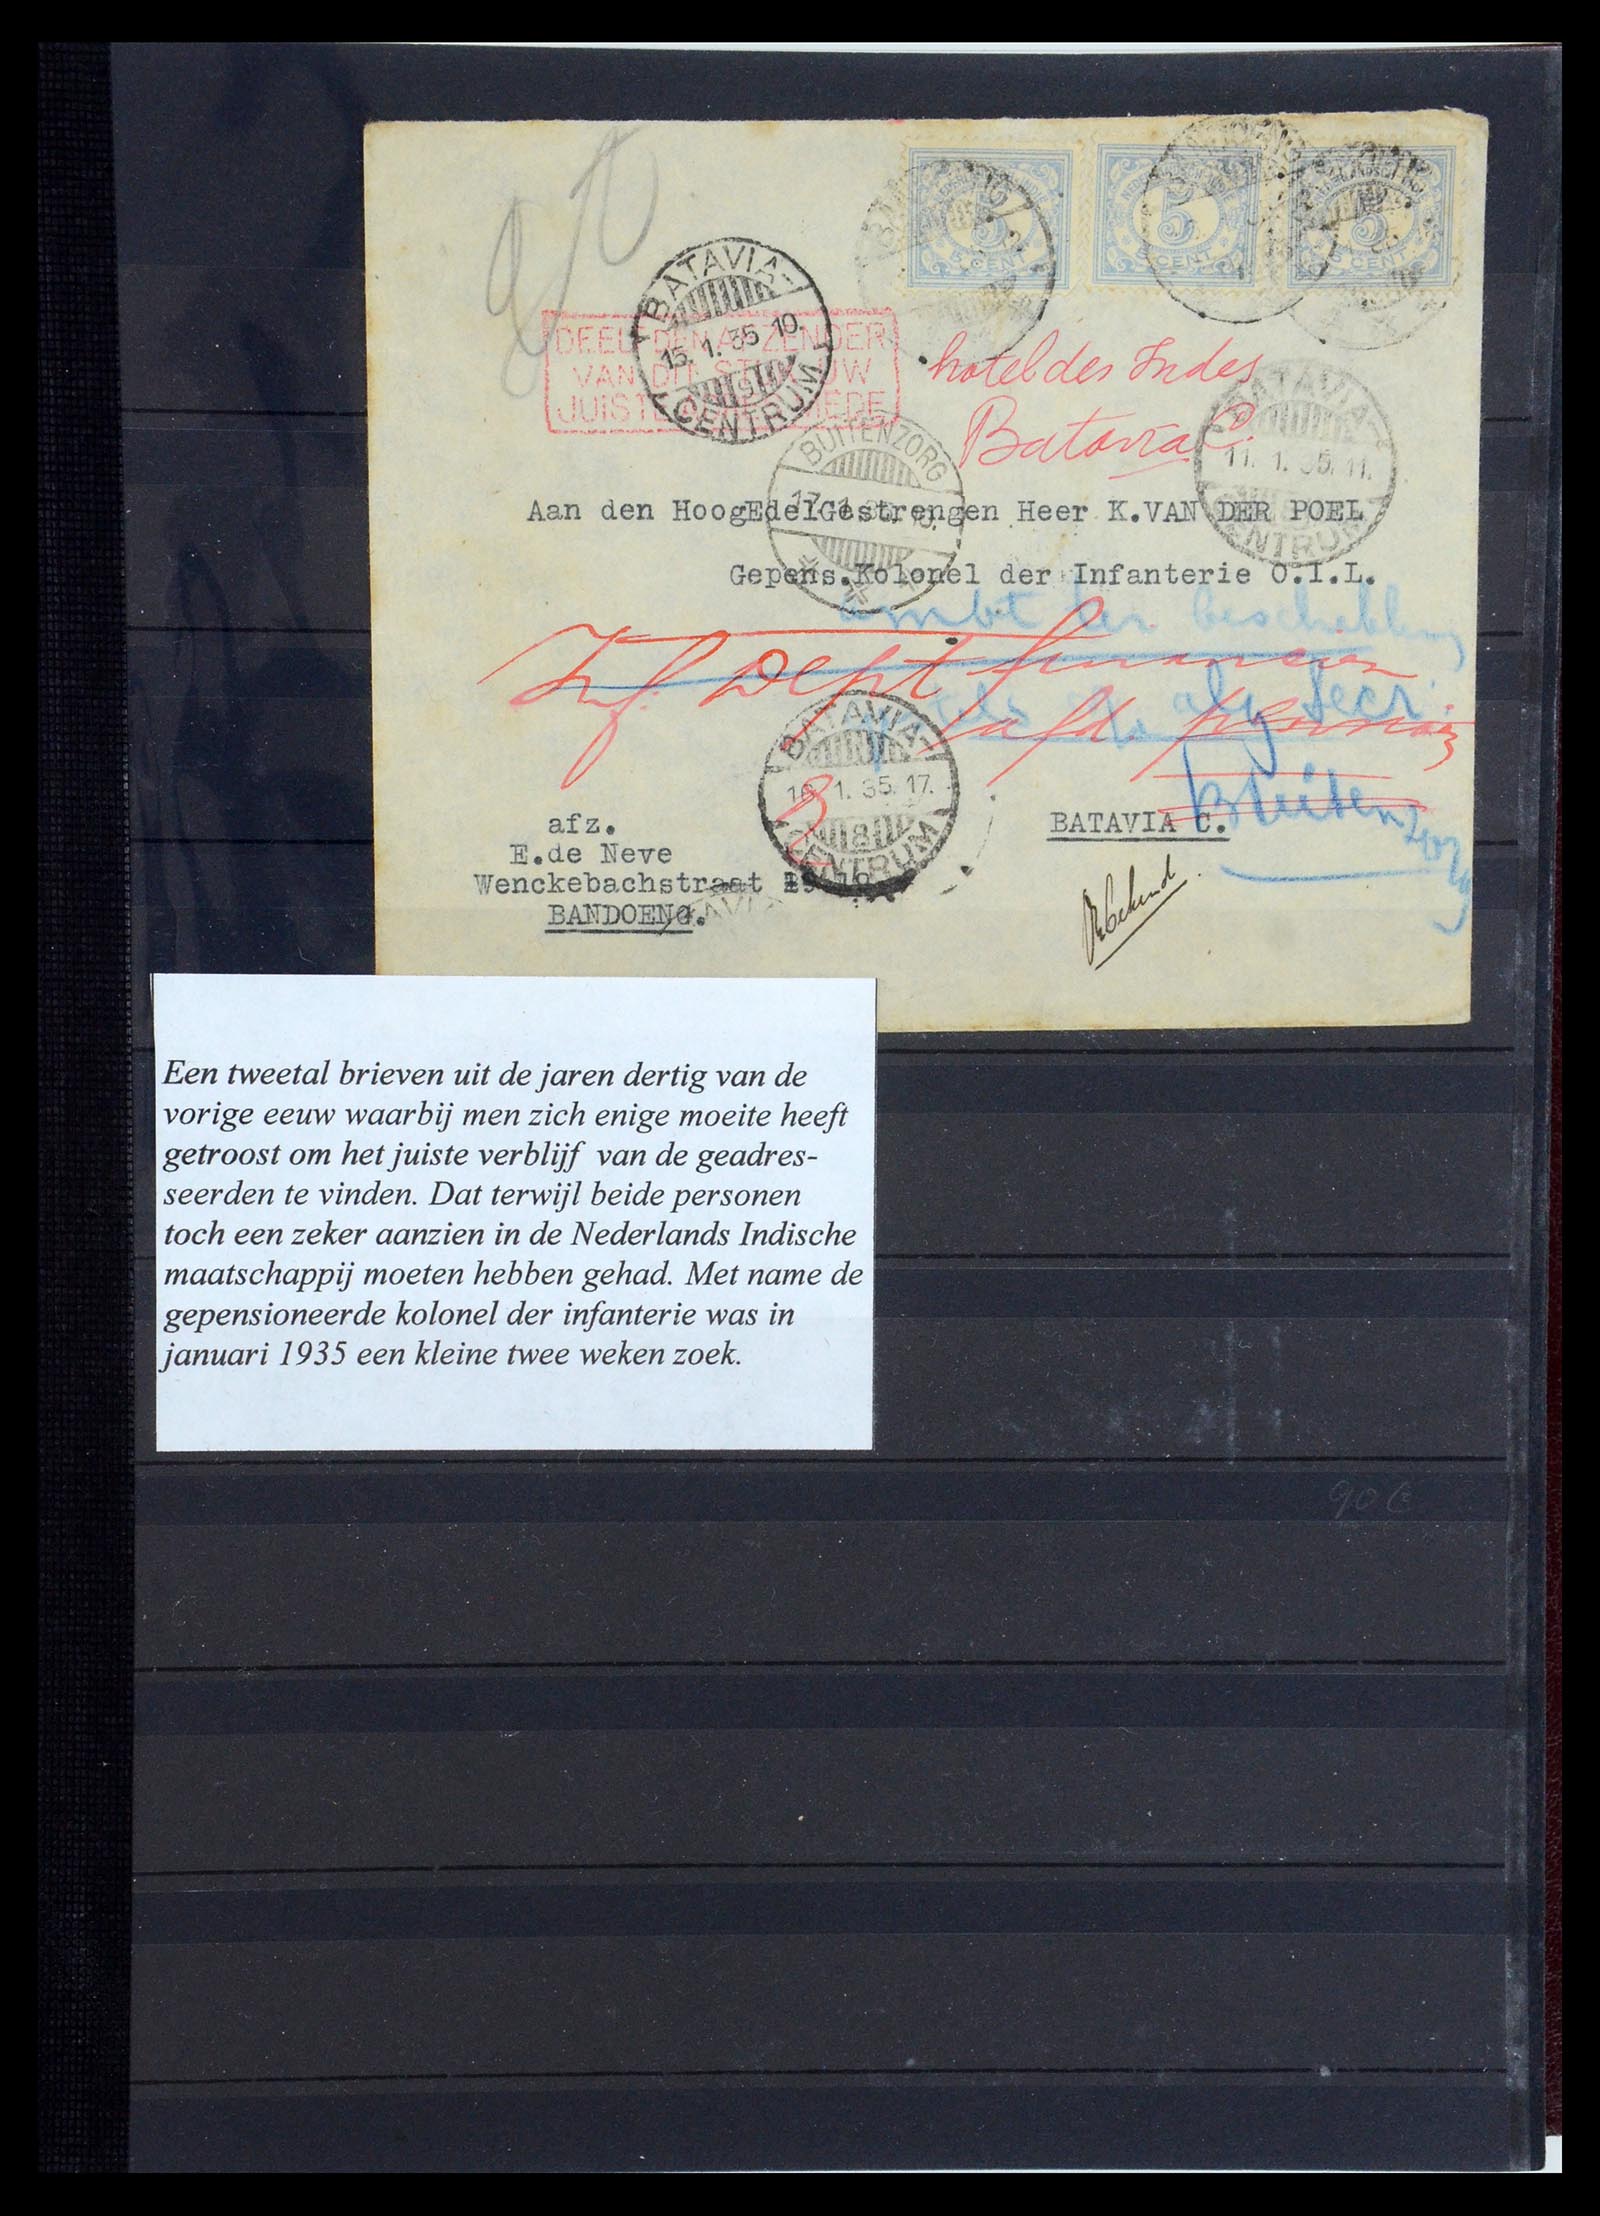 BATAVIA-
15.1.35 10.
9
CENTRUM
DEEL DEN AFZENDER
VAN DIT ST UW
JUISTE
5
5 CENT
5
5 CENT
5
5 CENT
hotel des Indes
Batavia C.
BUITENZORG
BATAVIA-
11. 1. 35. 11.
CENTRUM
Aan den HoogEdelGestrengen Heer K.VAN DER POEL
Gepens.Kolonel der Infanterie O.I.L.
Inf. Dept financien
afd.
alg Secr.
Buitenzorg
BATAVIA-
1. 35. 17.
8
CENTRUM
BATAVIA C.
afz.
E.de Neve
Wenckebachstraat
BANDOENG.
Een tweetal brieven uit de jaren dertig van de
vorige eeuw waarbij men zich enige moeite heeft
getroost om het juiste verblijf van de geadres-
seerden te vinden. Dat terwijl beide personen
toch een zeker aanzien in de Nederlands Indische
maatschappij moeten hebben gehad. Met name de
gepensioneerde kolonel der infanterie was in
januari 1935 een kleine twee weken zoek.
90 €